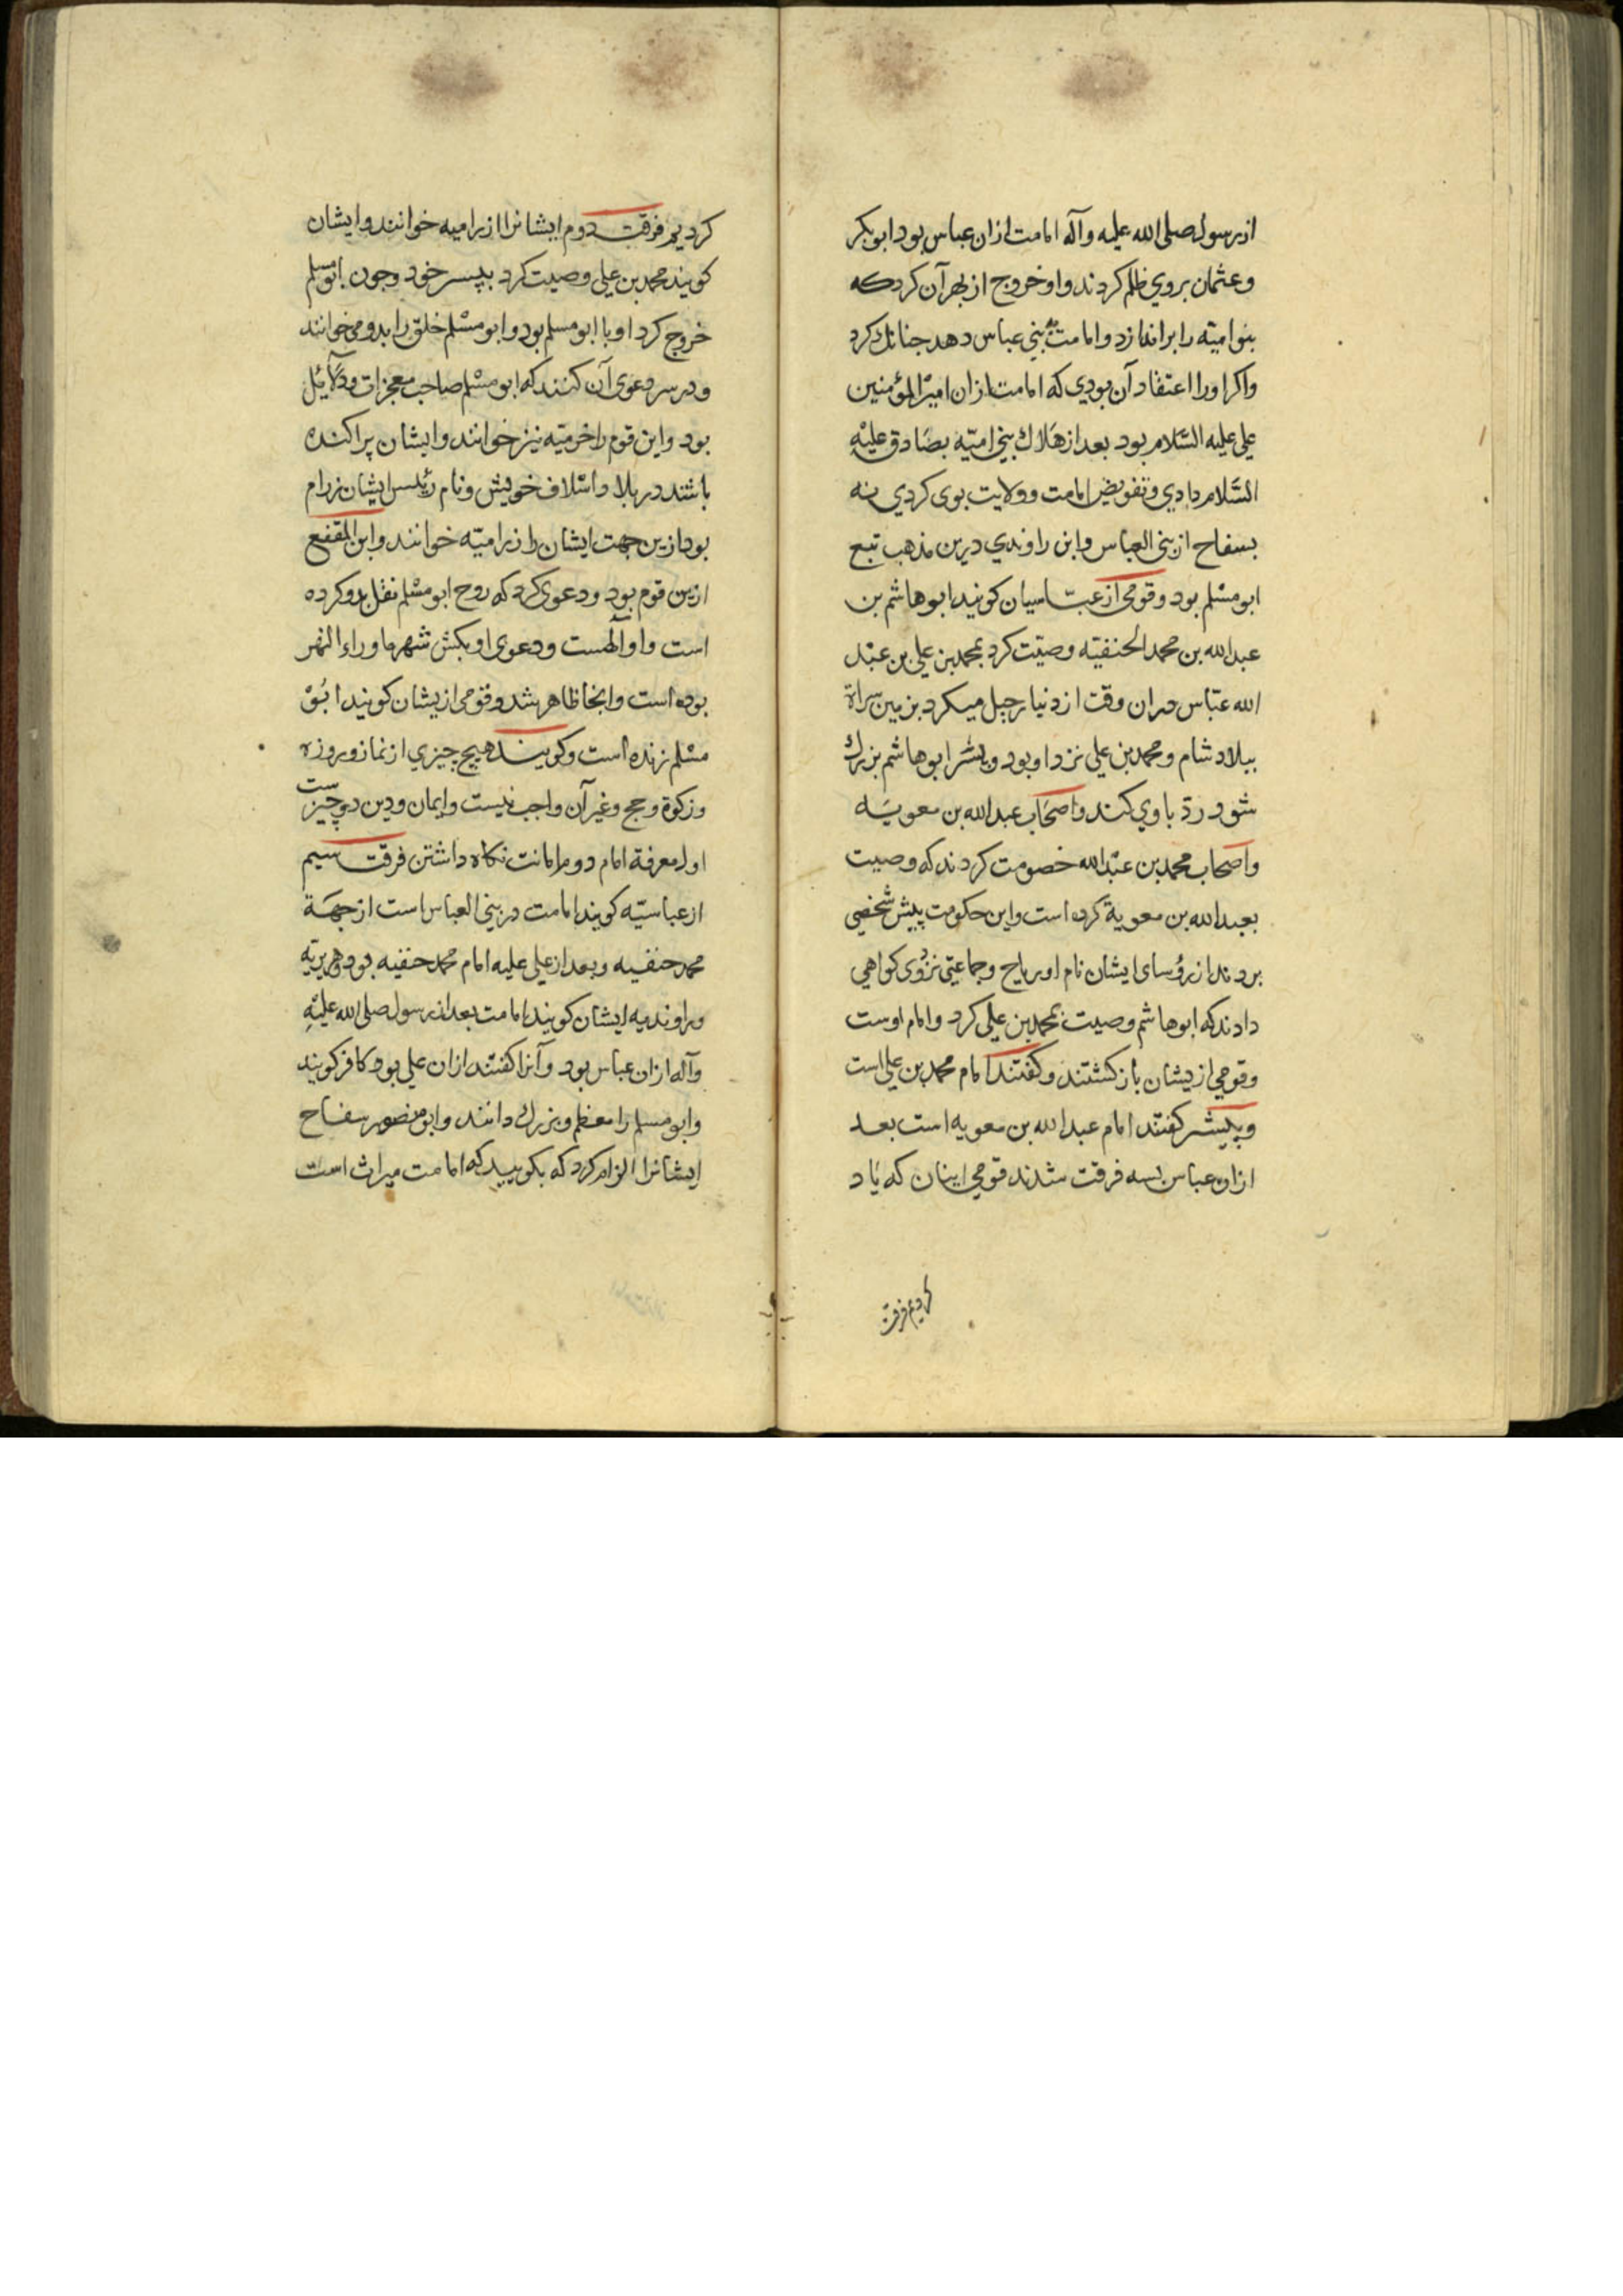 از رسول صلی الله علیه وآله امامت ازان عباس بود ابوبکر
وعثمان بروی ظلم کردند واو خروج از بهر آن کرد که
بنو امیّه را براندازد وامامت به بنی عباس دهد جنانك کرد
واکر اورا اعتقاد آن بودی که امامت ازان امیر المؤمنین
علی علیه السّلام بود بعد از هلاك بنی امیّه بصادق علیه
السّلام دادی وتفویض امامت وولایت بوی کردی نه
بسفاح از بنی العباس وابن راوندی درین مذهب تبع
ابومسلم بود وقومی از عبّاسیان کویند ابوهاشم بن
عبد الله بن محمد الحنفیّه وصیّت کرد بمحمد بن علی بن عبد
الله عبّاس دران وقت از دنیا رحیل میکرد بزمین سراة
ببلاد شام ومحمد بن علی نزد او بود وپسر ابوهاشم بزرك
شود ردّ باوی کند واصحاب عبد الله بن معویه
واصحاب محمد بن عبد الله خصومت کردند که وصیت
بعبد الله بن معویة کرده است واین حکومت پیش شخصی
بردند از رؤسای ایشان نام او ریاح وجماعتی نزد وی کواهی
دادند که ابوهاشم وصیت بمحمد بن علی کرد وامام اوست
وقومی ازیشان باز کشتند وکفتند امام محمد بن علی است
وبیشتر کفتند امام عبد الله بن معویه است بعد
ازان عباس بسه فرقت شدند قومی اینان که یاد
کردیم فرقت
کردیم فرقت دوم ایشانرا ازرامیه خوانند وایشان
کویند محمد بن علی وصیت کرد بپسر خود وجون ابومسلم
خروج کرد او با ابومسلم بود وابومسلم خلق را بدو می خوانند
ودر سر دعوی آن کنند که ابومسلم صاحب معجزات ودلائل
بود واین قوم را خرمیّه نیز خوانند وایشان پراکنده
باشند در بلاد واسلاف خویش ونام رئیس ایشان زرام
بود ازین جهت ایشان را زرامیّه خوانند وابن المقفع
ازین قوم بود ودعوی کرد که روح ابومسلم نقل بدو کرده
است واو آلهست ودعوی او بکش شهر ماوراء النهر
بوده است وانجا ظاهر شد وقومی ازیشان کویند ابو
مسلم زنده است وکویند هیچ چیزی از نماز وروزه
وزکوة وحج وغیر آن واجب نیست وایمان ودین دو چیزست
اول معرفة امام دوم امانت نکاه داشتن فرقت سیم
از عباسیّه کویند امامت در بنی العباس است از جهة
محمد حنفیه وبعد از علی علیه امام محمد حنفیه بود وهریریّه
وراوندیه ایشان کویند امامت بعد از رسول صلی الله علیه
وآله ازان عباس بود وآنرا کفتند ازان علی بود کافر کویند
وابومسلم را معظم وبزرك دانند وابو منصور سفاح
ایشانرا الزام کرد که بکویید که امامت میراث است